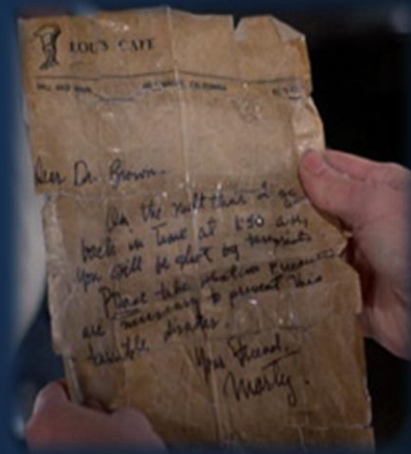 LOU'S CAFE
Dear Dr. Brown.
On the night that I go
back in time at 1:50 a.m,
You will be shot by terrorists
Please take whatever
are necessary to prevent this
terrible disaster.
Your Friend.
Marty.